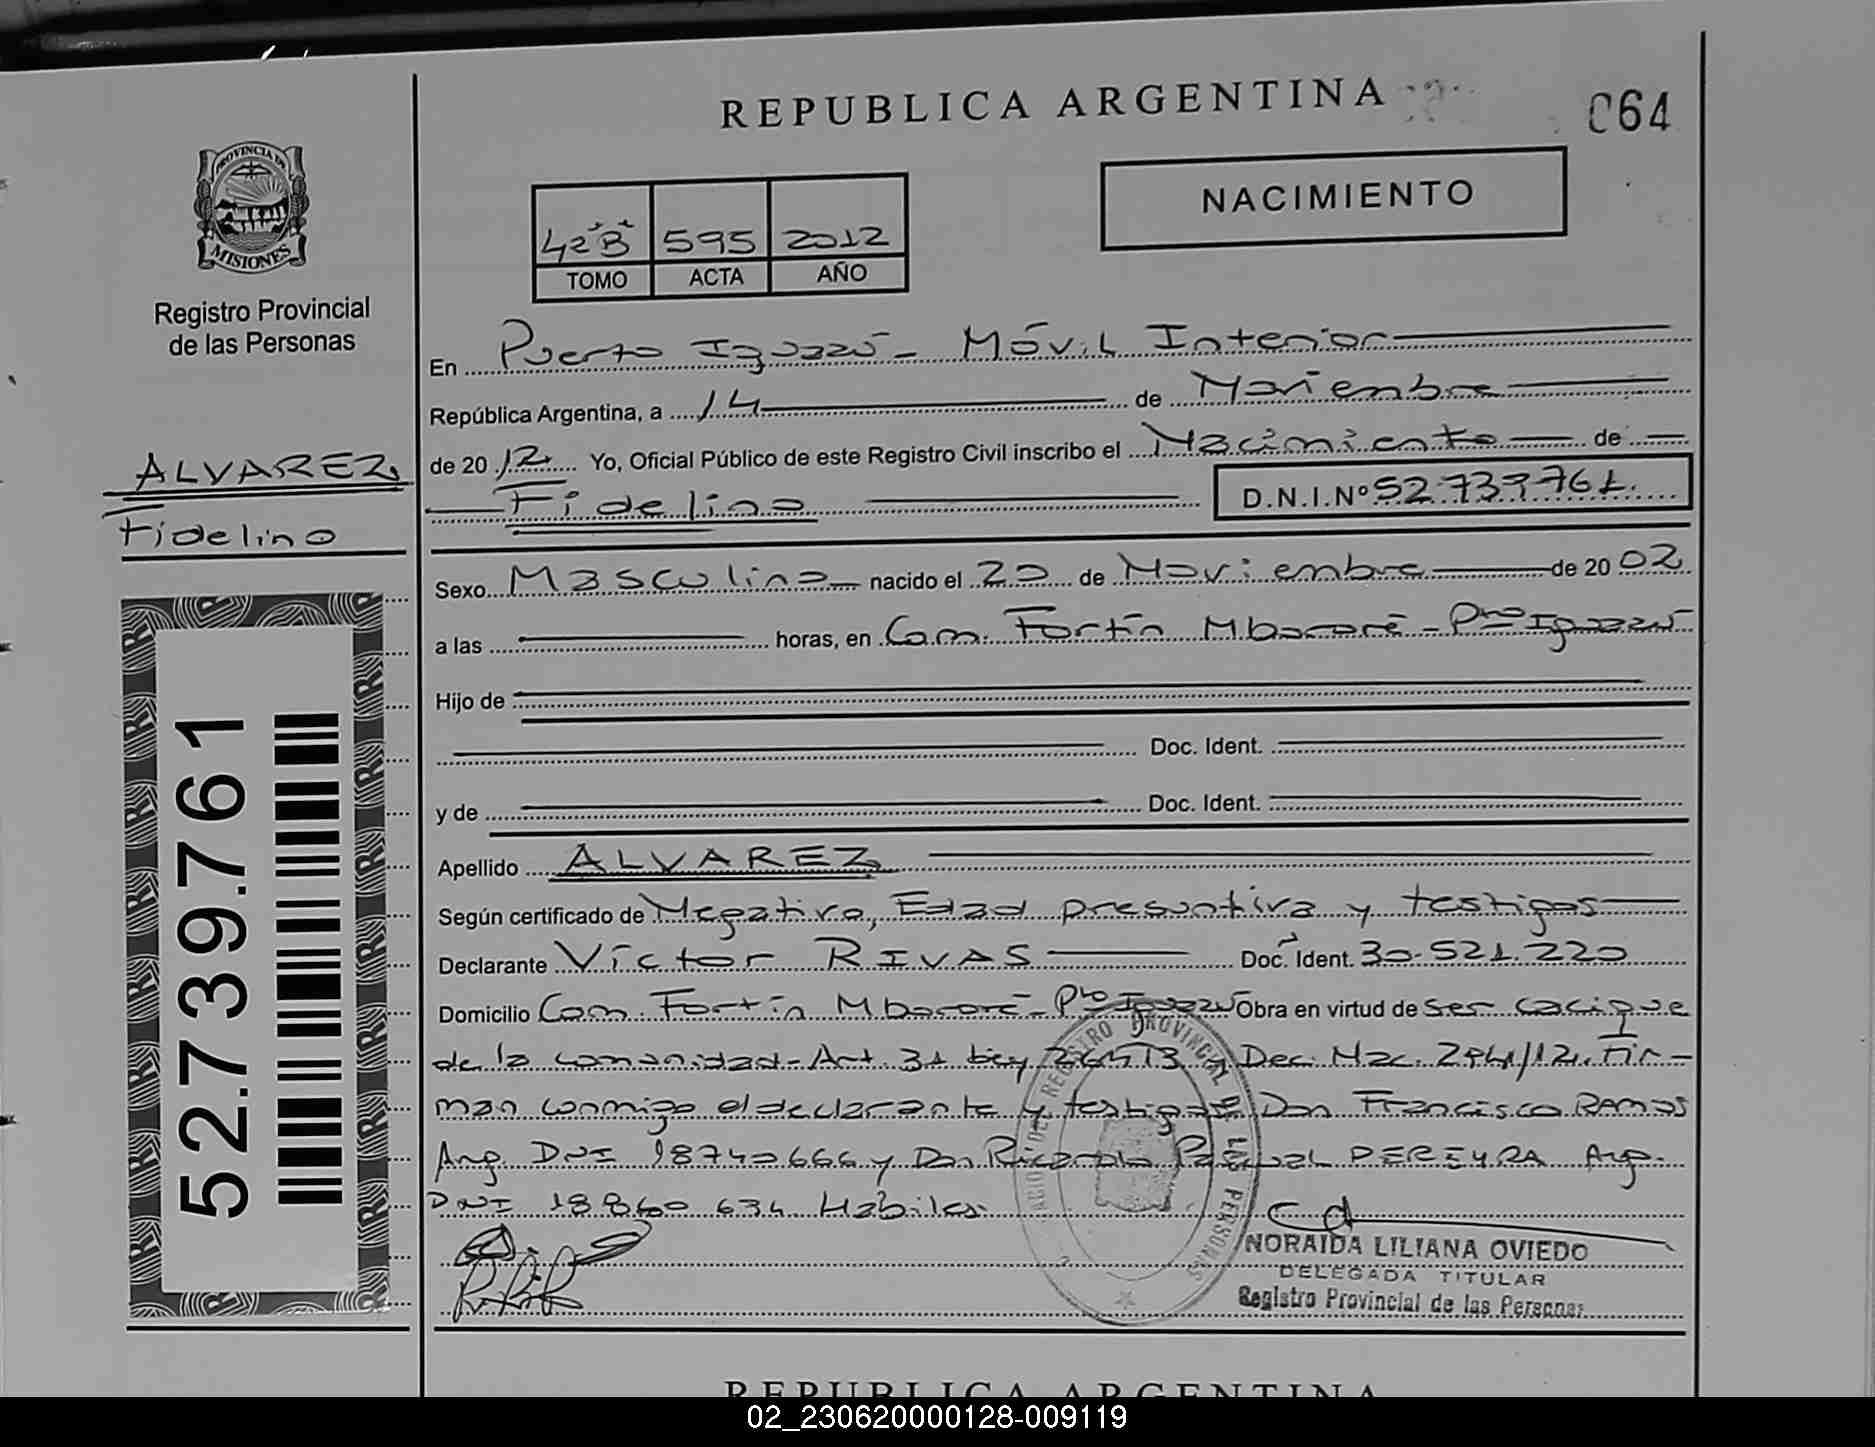 REPUBLICA ARGENTINA
064
PROVINCIA DE
MISIONES
Registro Provincial
de las Personas
42"B" 595 2012
TOMO ACTA AÑO
NACIMIENTO
En Puerto Iguazú - Móvil Interior
República Argentina, a 14 de Noviembre
de 2012 Yo, Oficial Público de este Registro Civil inscribo el Nacimiento de
Fidelino D.N.I. Nº 52.739.761.
ALVAREZ
Fidelino
Sexo Masculino nacido el 20 de Noviembre de 2002
a las horas, en Com. Fortín Mbororé - Pto Iguazú
Hijo de
Doc. Ident.
y de Doc. Ident.
Apellido ALVAREZ
Según certificado de Negativo, Edad presuntiva y testigos
Declarante Víctor RIVAS Doc. Ident. 30.521.220
Domicilio Com. Fortín Mbororé - Pto Iguazú Obra en virtud de ser cacique
de la comunidad - Art. 31 Ley 26413 Dec. Nac. 294/12. Fir-
man conmigo el declarante y testigos Don Francisco RAMOS
Arg. DNI 18740666 y Don Ricardo PEREYRA Arg.
DNI 18860634 Hábiles.
52.739.761
REGISTRO PROVINCIAL DE LAS PERSONAS
NORAIDA LILIANA OVIEDO
DELEGADA TITULAR
Registro Provincial de las Personas
REPUBLICA ARGENTINA
02_230620000128-009119